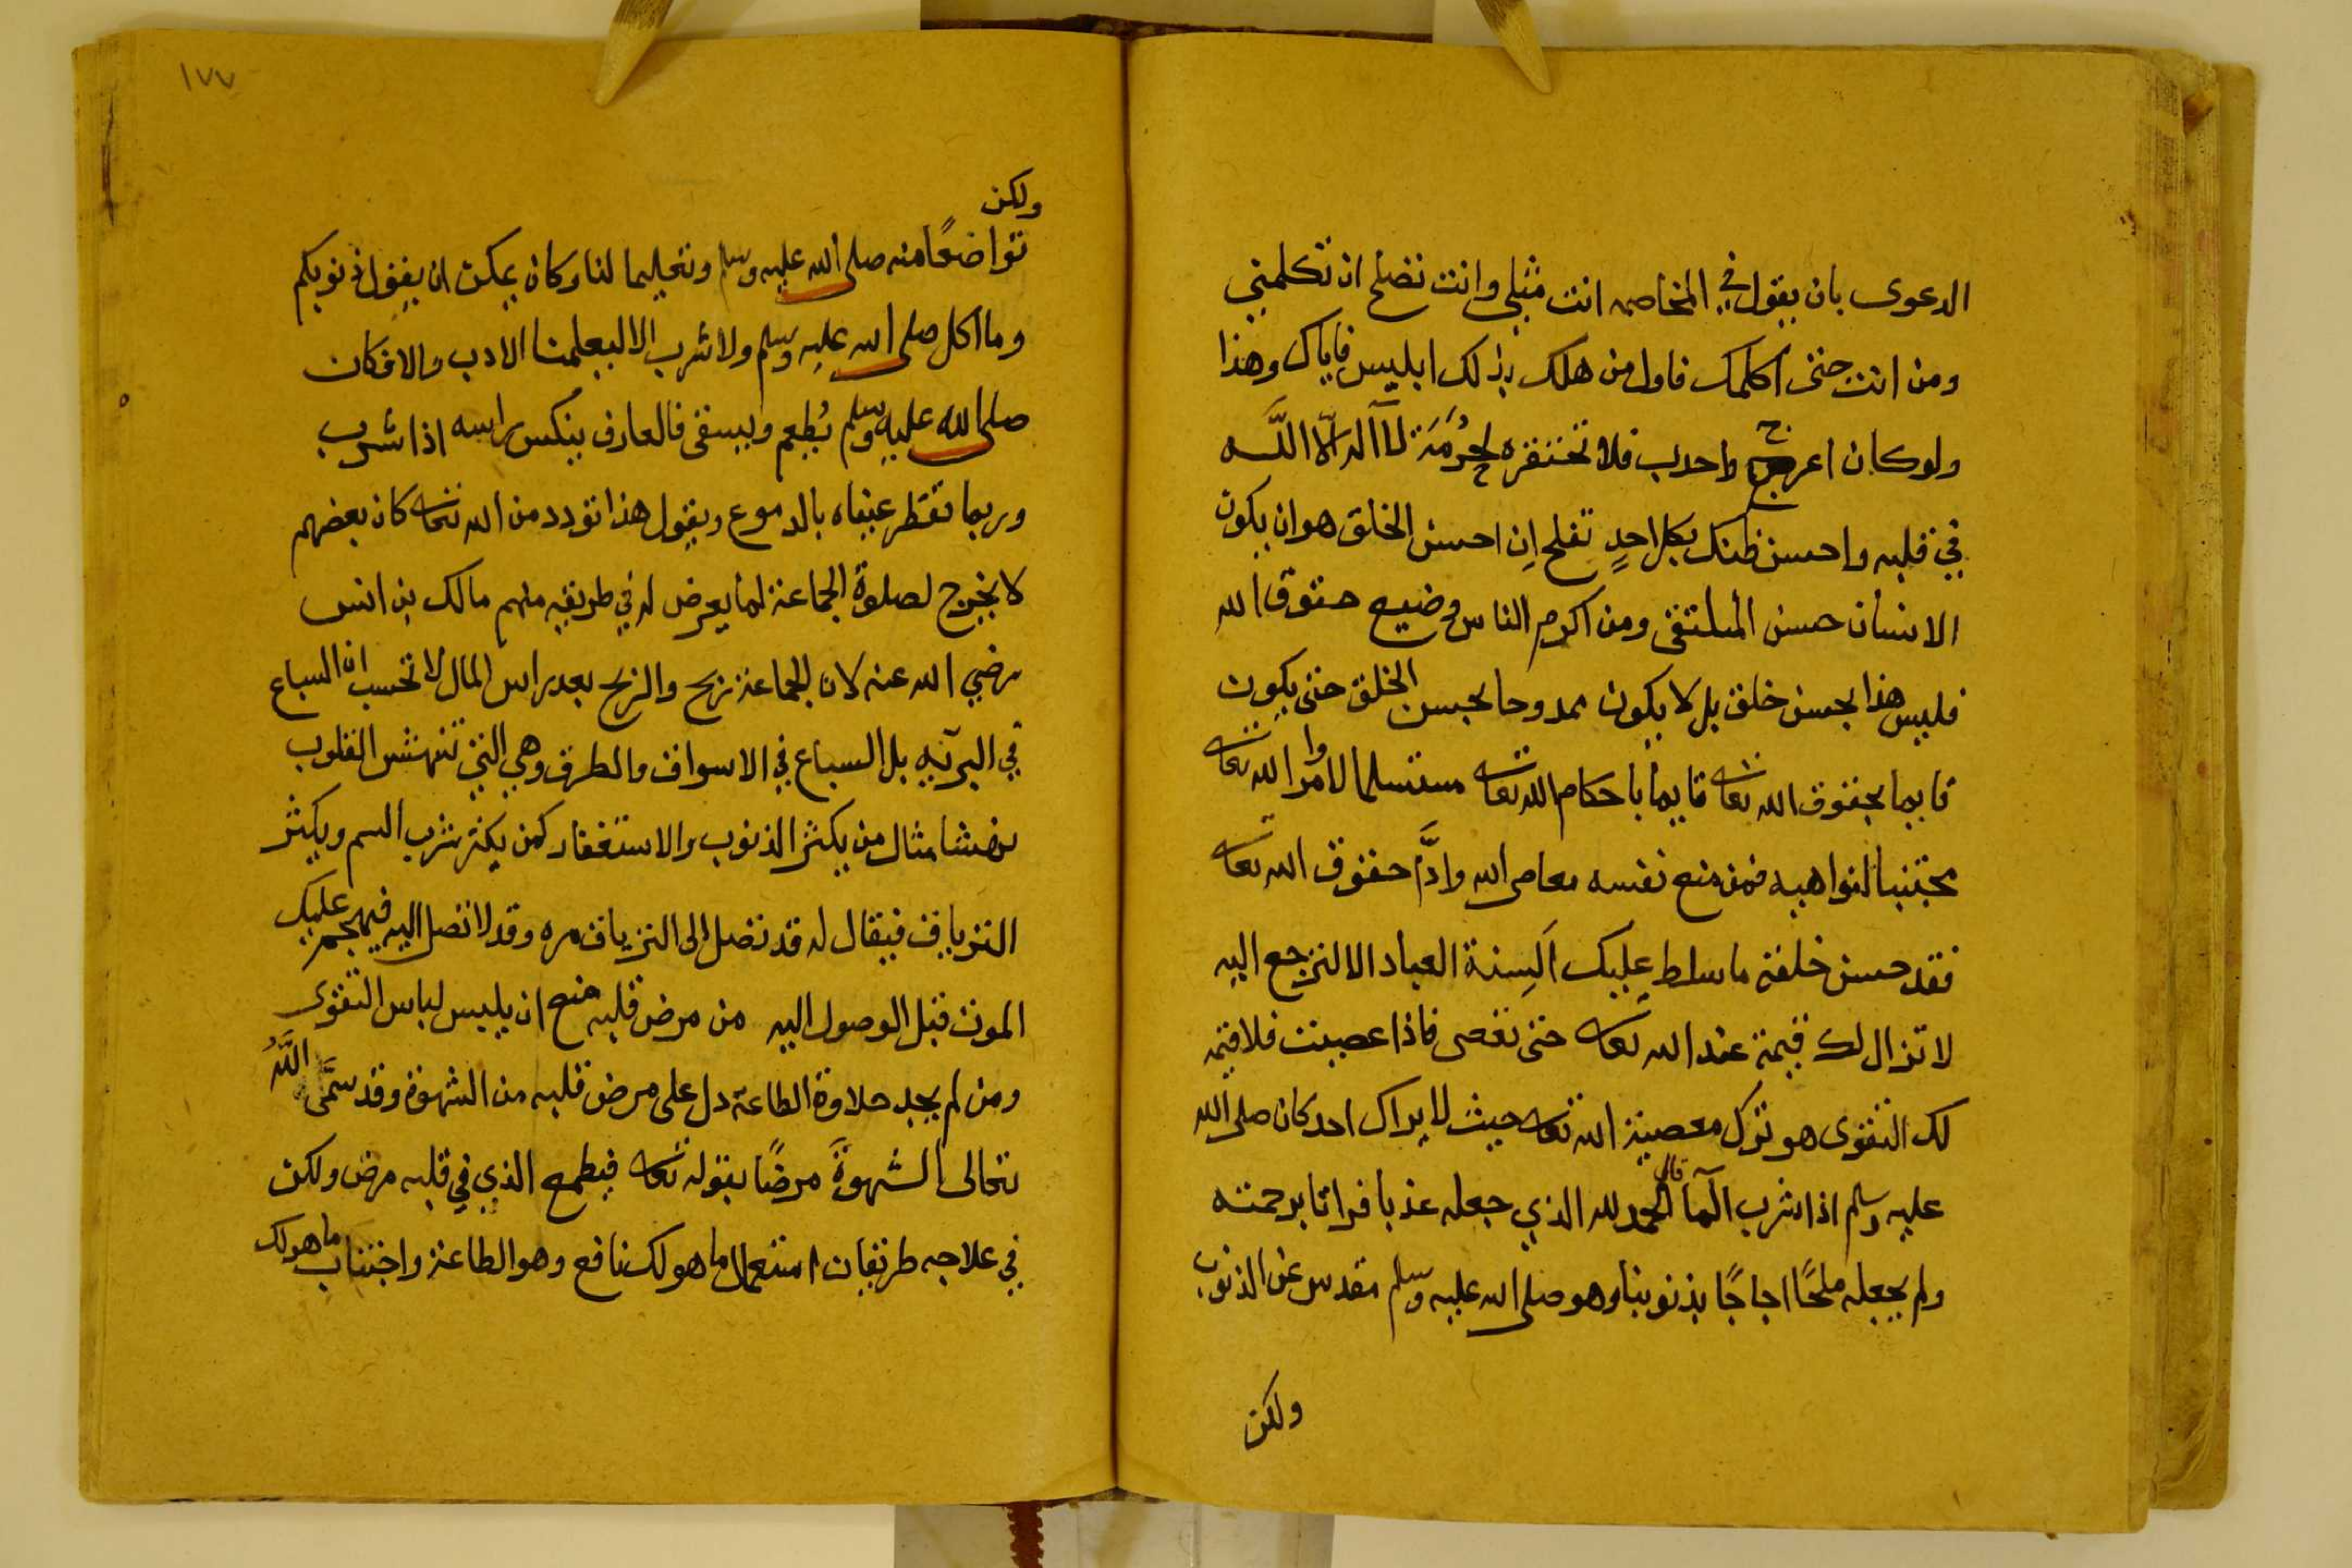 الدعوى بان يقول في المخاصمه انت مثلي وانت تصلح ان تكلمني
ومن انت حتى اكلمك فاول من هلك بذلك ابليس فاياك وهذا
ولو كان اعرج واحدب فلا تحتقره لحُرْمَة لآ اله الّا اللَّه
في قلبه واحسن ظنك بكل احدٍ تفلح اِن احسن الخلق هو ان يكون
الانسان حسن الملتقى ومن اكرم الناس وضيع حقوق الله
فليس هذا بحسن خلق بل لا يكون ممدوحا بحسن الخلق حتى يكون
قايما بحقوق الله تعالى قايما باحكام الله تعالى مستسلما لاوامر الله تعالى
مجتنبا لنواهيه فمن منع نفسه معاصى الله وادَّا حقوق الله تعالى
فقد حسن خلقه ما سلط عليك اَلسِنة العباد الا لترجع اليه
لا تزال لك قيمة عند الله تعالى حتى تعصى فاذا عصيت فلا قيمه
لك التقوى هو ترك معصية الله تعالى حيث لا يراك احد كان صلى الله
عليه وسلم اذا شرب المآ قال الحمد لله الذي جعله عذبا فراتا برحمته
ولم يجعله ملحًا اجاجًا بذنوبنا وهو صلى الله عليه وسلم مقدس عن الذنوب
ولكن
١٧٧
ولكن
تواضعًا منه صلى الله عليه وسلم وتعليما لنا وكان يمكن ان يقول بذنوبكم
وما اكل صلى الله عليه وسلم ولا شرب الا ليعلمنا الادب والا فكان
صلى الله عليه وسلم يُطعم ويسقى فالعارف ينكس راسه اذا شرب
وربما تقطر عيناه بالدموع ويقول هذا تودد من الله تعالى كان بعضهم
لا يخرج لصلوة الجماعة لما يعرض له في طريقه منهم مالك بن انس
رضي الله عنه لان الجماعة ربح والربح بعد راس المال لا تحسب ان السباع
في البرّيه بل السباع في الاسواق والطرق وهي التي تنهش القلوب
نهشا مثال من يكثر الذنوب والاستغفار كمن يكثر شرب السم ويكثر
الترياق فيقال له قد تصل الى الترياق مره وقد لا تصل اليه فيهجم عليك
الموت قبل الوصول اليه من مرض قلبه منع ان يلبس لباس التقوى
ومن لم يجد حلاوة الطاعة دل على مرض قلبه من الشهوة وقد سمَّى اللَّهُ
تعالى الشهوةَ مرضًا بقوله تعالى فيطمع الذي في قلبه مرض ولكن
في علاجه طريقان استعمال ما هو لك نافع وهو الطاعة واجتناب ما هو لك